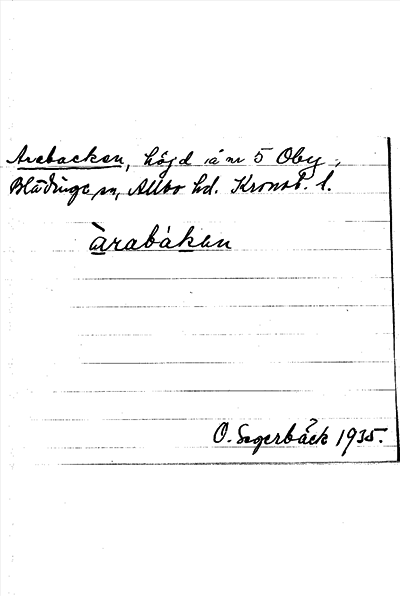 Arebacken, höjd å nr 5 Oby,
Blädinge sn, Allbo hd. Kronob. l.
àrabákan
O. Segerbäck 1935.